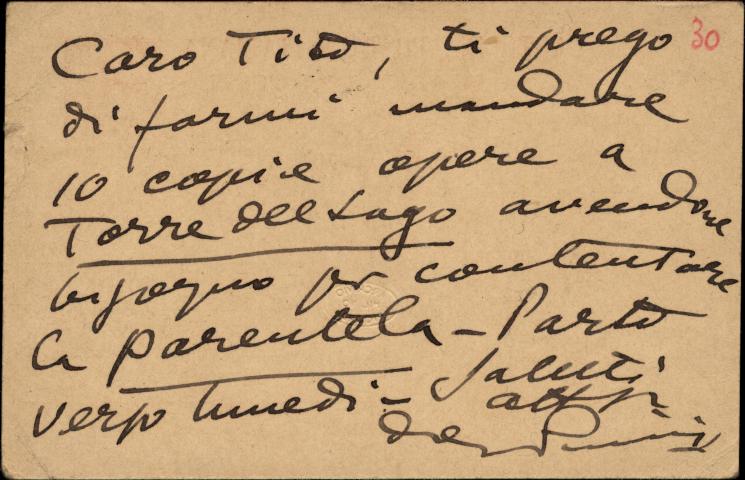 Caro Tito, ti prego 30
di farmi mandare
10 copie opere a
Torre del Lago avendone
bisogno per contentare
la parentela - Parto
verso lunedi - Saluti